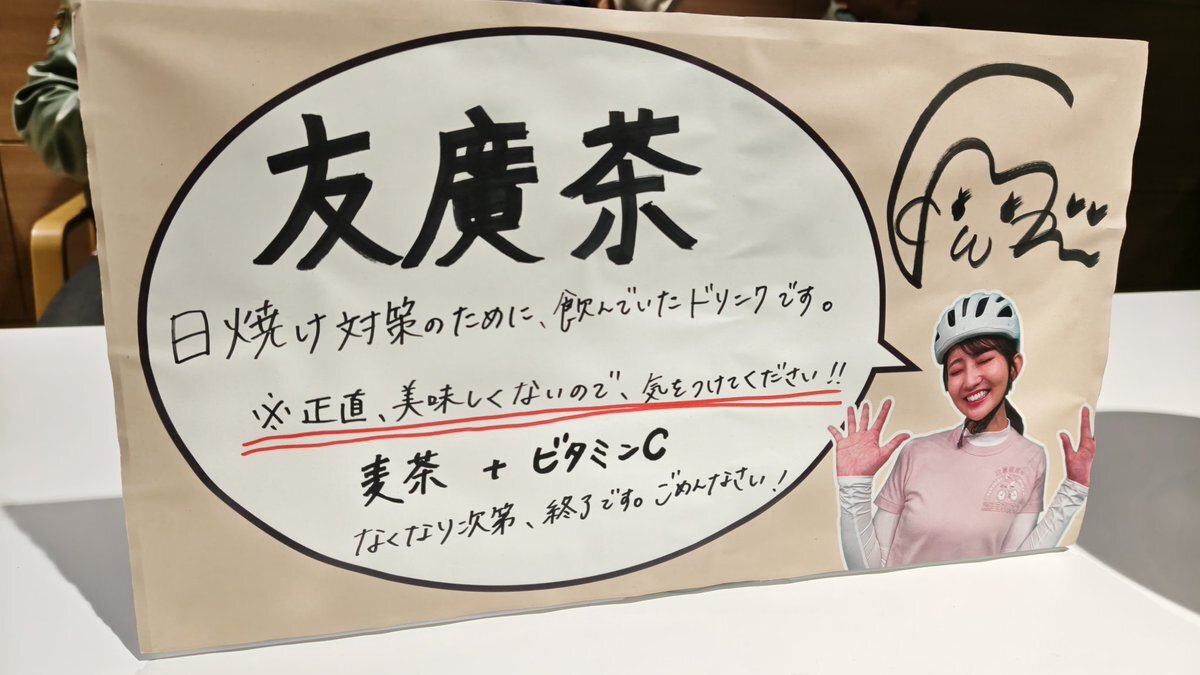 友廣茶
日焼け対策のために、飲んでいたドリンクです。
※正直、美味しくないので、気をつけてください!!
麦茶 + ビタミンC
なくなり次第、終了です。ごめんなさい!